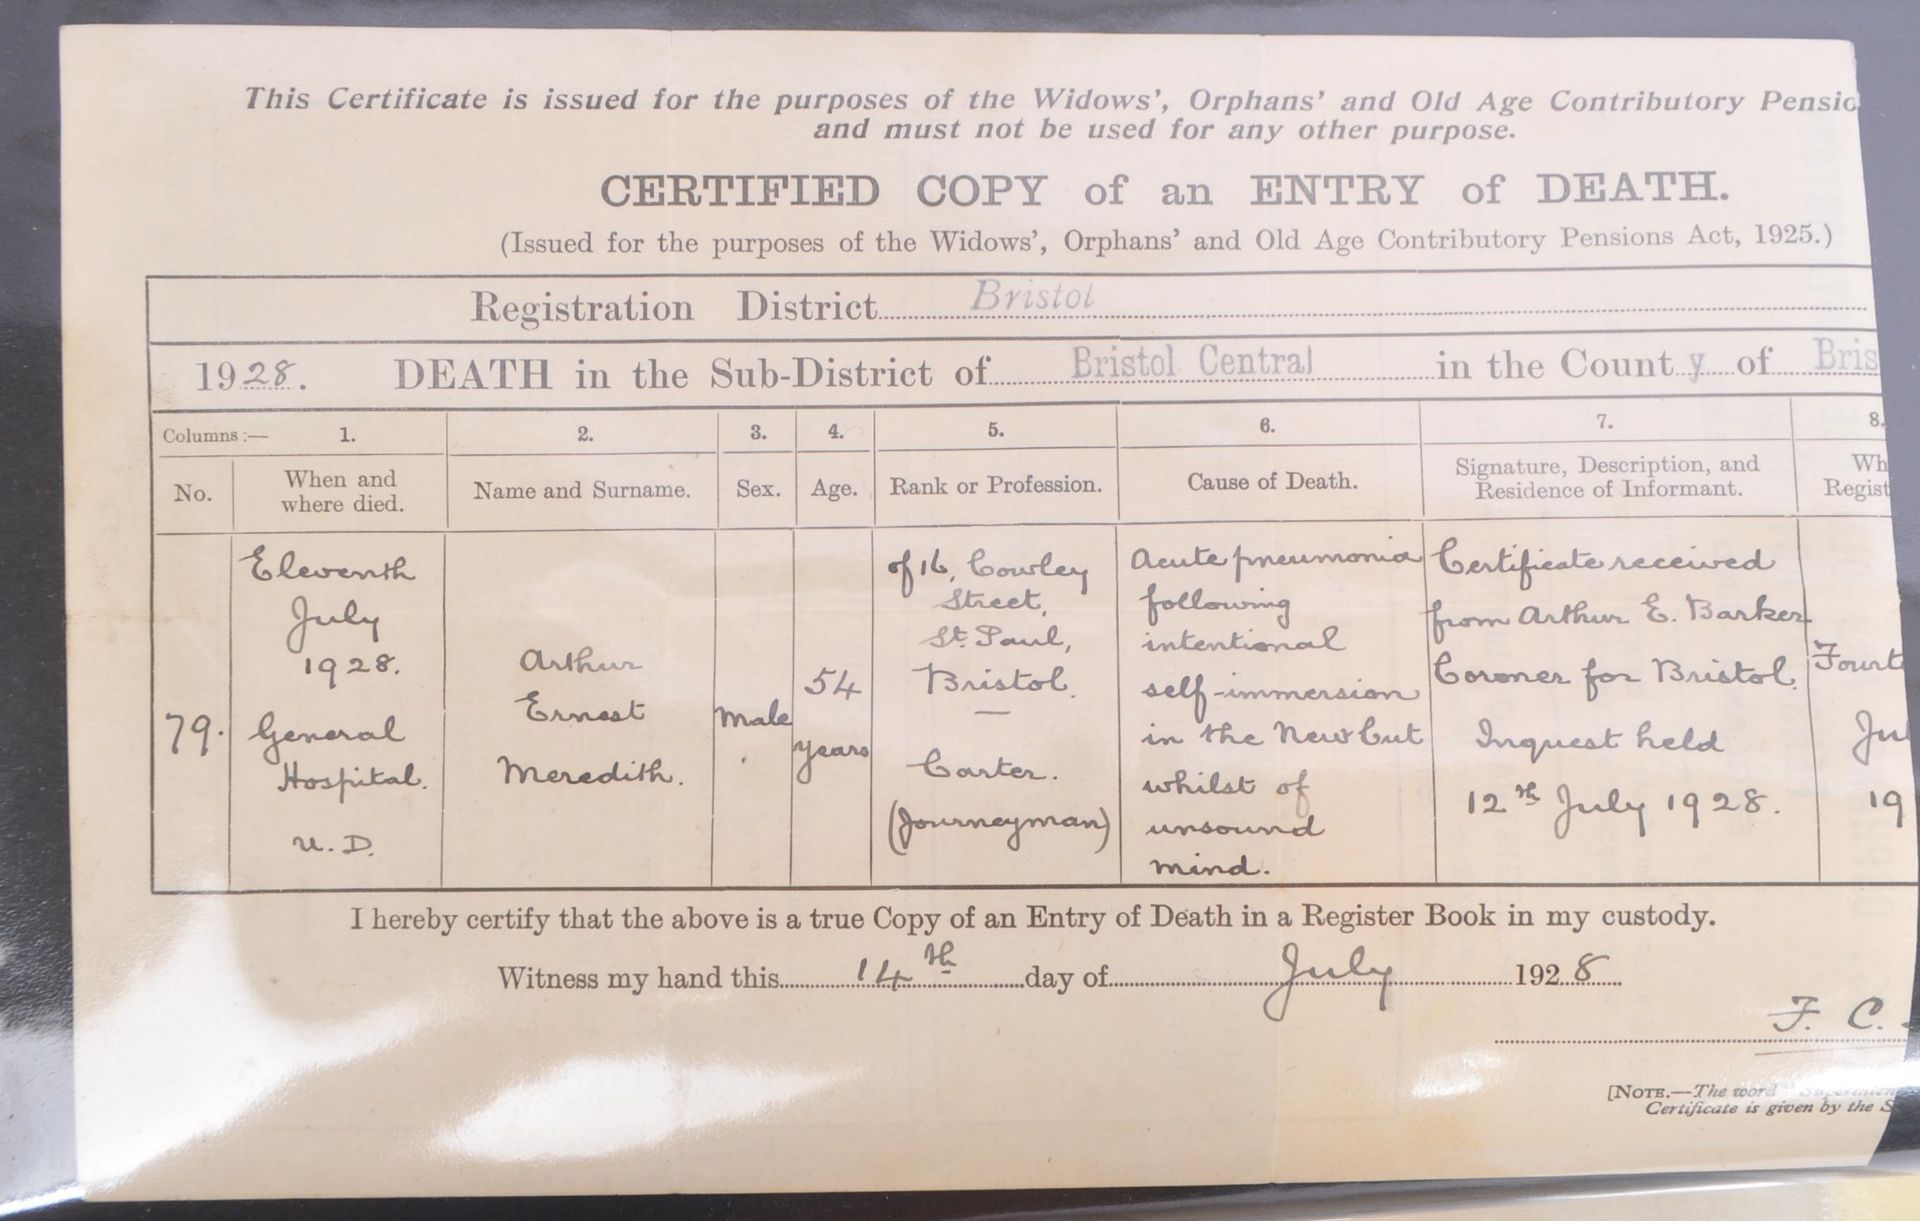 This Certificate is issued for the purposes of the Widows', Orphans' and Old Age Contributory Pensio
and must not be used for any other purpose.
CERTIFIED COPY of an ENTRY of DEATH.
(Issued for the purposes of the Widows', Orphans' and Old Age Contributory Pensions Act, 1925.)
Registration District Bristol
1928. DEATH in the Sub-District of Bristol Central in the County of Bris
Columns:— 1. 2. 3. 4. 5. 6. 7. 8.
No.
When and
where died.
Name and Surname.
Sex.
Age.
Rank or Profession.
Cause of Death.
Signature, Description, and
Residence of Informant.
Wh
Regist
79.
Eleventh
July
1928.
General
Hospital.
U.D.
Arthur
Ernest
Meredith.
Male
54
years
of 16, Cowley
Street,
St. Paul,
Bristol.
—
Carter.
(Journeyman)
Acute pneumonia
following
intentional
self-immersion
in the New Cut
whilst of
unsound
mind.
Certificate received
from Arthur E. Barker
Coroner for Bristol.
Inquest held
12th July 1928.
Fourt
Jul
19
I hereby certify that the above is a true Copy of an Entry of Death in a Register Book in my custody.
Witness my hand this 14th day of July 1928
F. C.
[NOTE.—The word "
Certificate is given by the S